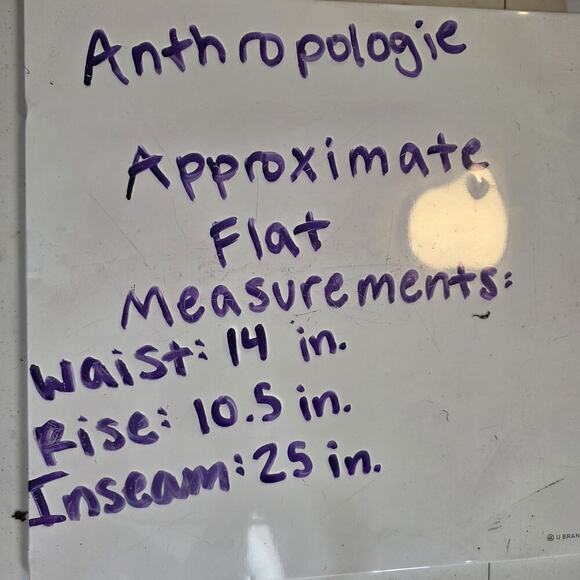 Anthropologie
Approximate
Flat
Measurements:
Waist: 14 in.
Rise: 10.5 in.
Inseam: 25 in.
U BRAN